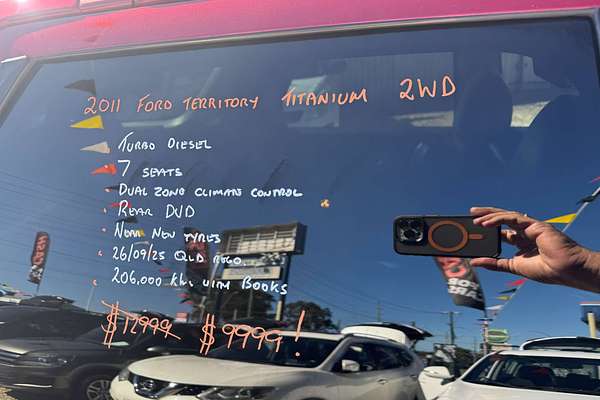 2011 FORD TERRITORY TITANIUM 2WD
TURBO DIESEL
7 SEATS
DUAL ZONE CLIMATE CONTROL
REAR DVD
NEAR NEW TYRES
26/09/25 QLD REGO
206,000 KMS WITH BOOKS
$12999 $9999!